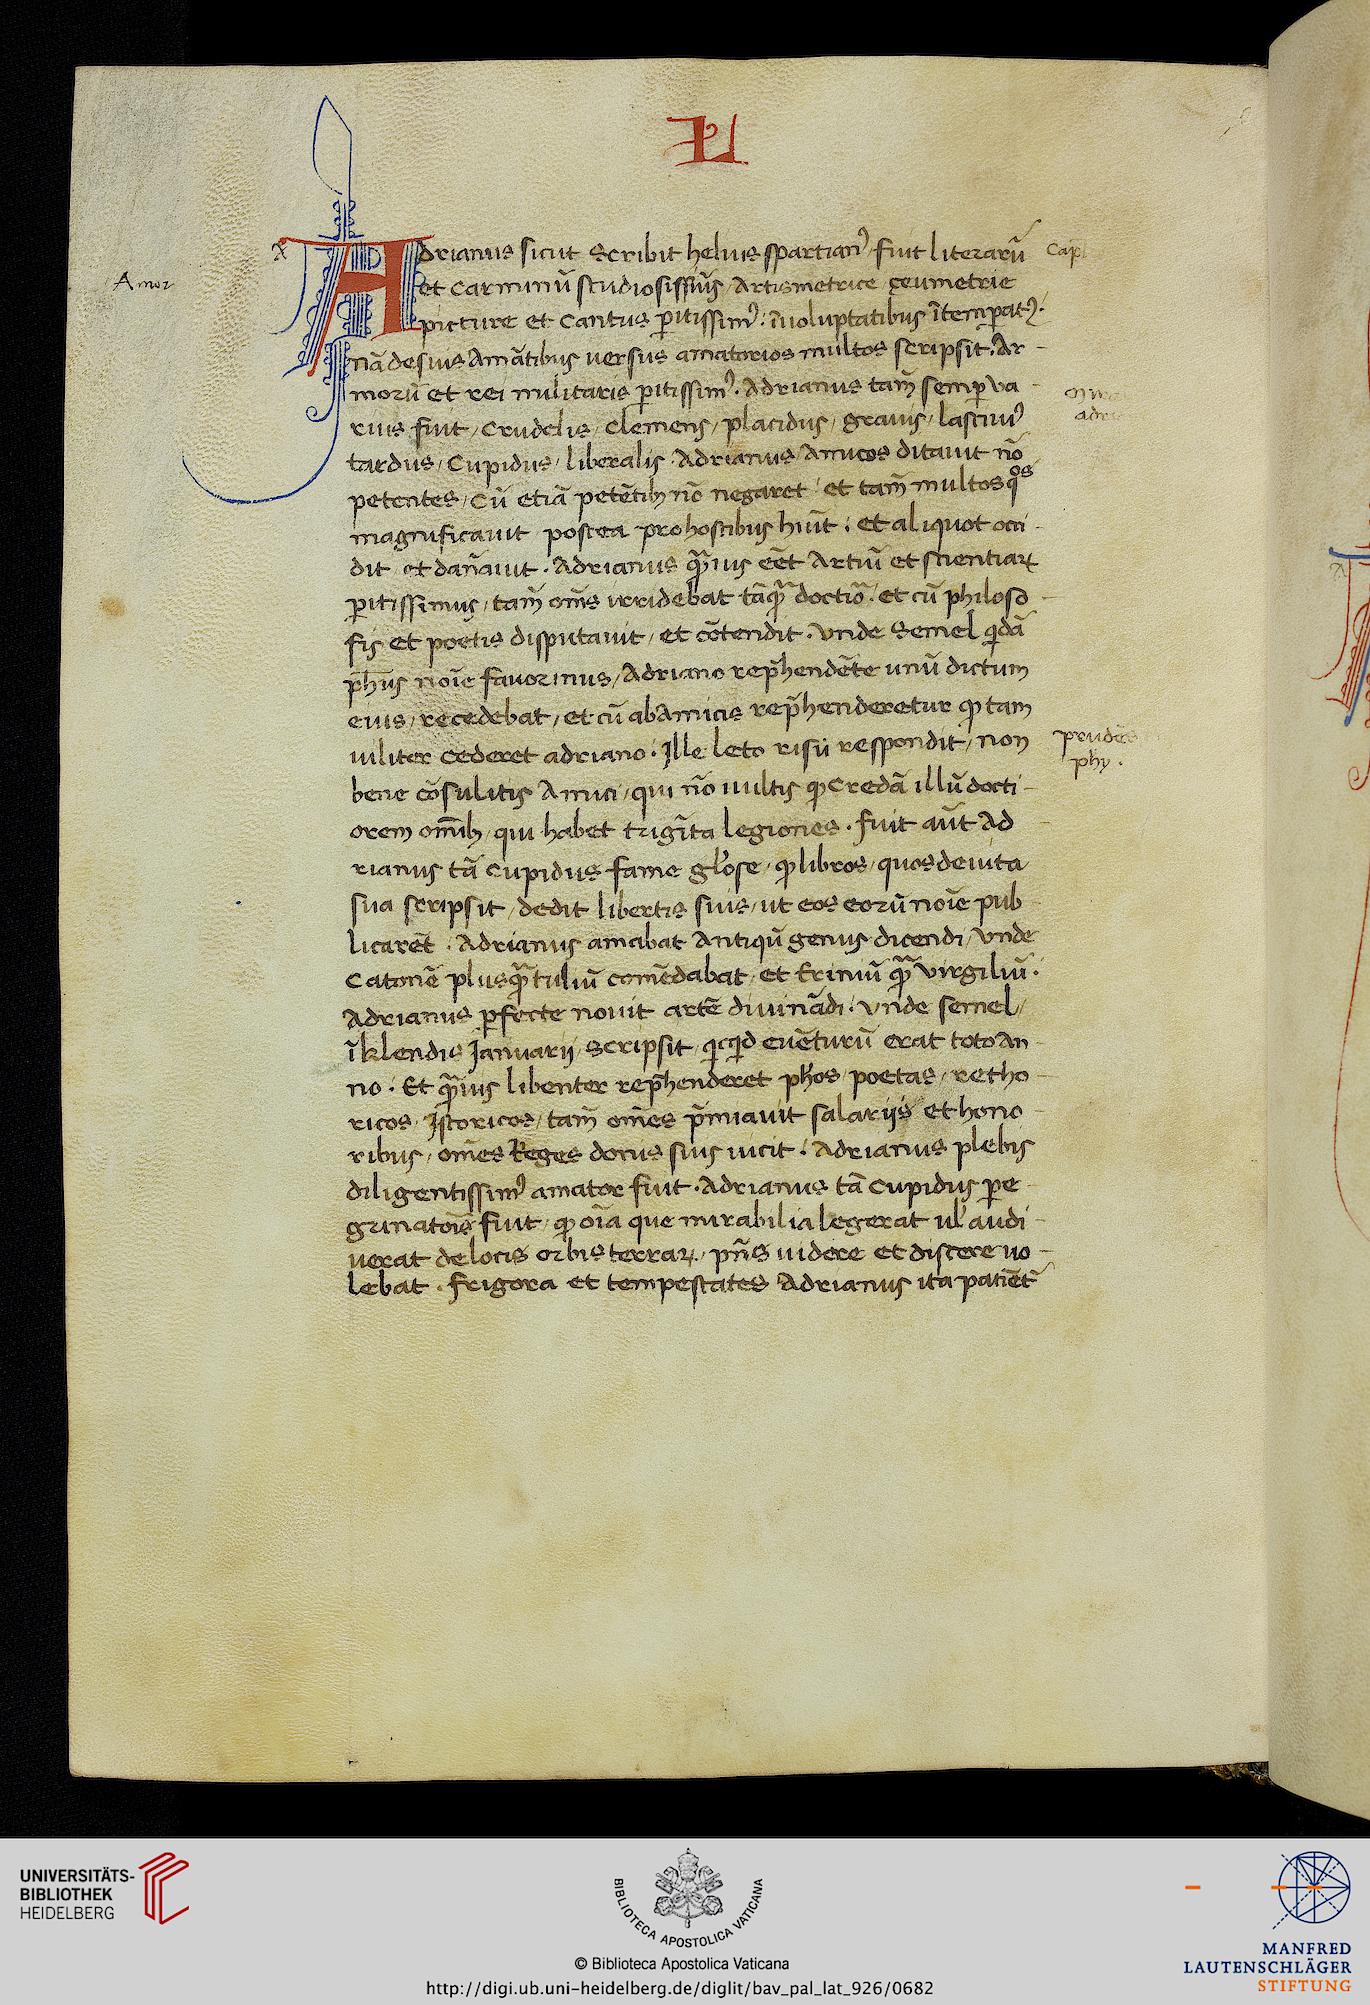 Adrianus sicut scribit helius spartianꝰ fuit literarū
et carminū studiosissimꝰ, artismetrice, geumetrie
picture et cantus ꝑitissimꝰ. ī uoluptatibus ītemꝑatꝰ.
nā de suis amātibus uersus amatorios multos scripsit. Ar
morū et rei militaris ꝑitissimꝰ. Adrianus tam̄ semꝑ ua
rius fuit, crudelis, clemens, placidus, grauis, lasciuꝰ
tardus, cupidus, liberalis. Adrianus, Amicos ditauit nō
petentes, cū etiā petētibꝫ nō negaret. et tam̄ multos qͦs
magnificauit postea pro hostibus hiūt. et aliquot occi
dit et dān̄auit. Adrianus qͣ̄uis eēt artiū et scientiaꝝ
ꝑitissimus, tam̄ om̄s irridebat tāqͣ̄ doctioꝝ. et cū philoso
fis et poetis disputauit, et cōtendit. Vnde semel qͥdā
ph̄us noīe fauorinus, Adriano rep̄hendēte unū dictum
eius, recedebat, et cū ab amicis rep̄henderetur ꝙ tam
uiliter cederet adriano. Ille leto risu respondit, non
bene cōsulitis Amici, qui nō uultis ꝙ credā illū docti
orem om̄ibꝫ, qui habet trigīta legiones. fuit aūt Ad
rianus tā cupidus fame gl̄ose, ꝙ libros, quos de uita
sua scripsit, dedit libertis suis, ut eos eorū noīe pub
licarēt. Adrianus amabat antiqū genus dicendi, Vnde
Catonē plusqͣ̄ tuliū comēdabat, et Eriniū qͣ̄ Virgiliū.
Adrianus ꝑfecte nouit artē diuināndi. Vnde semel,
ī kl̄endis Januarij, scripsit, qͥcqͥd euēturū erat toto an
no. Et qͣ̄uis libenter rep̄henderet ph̄os, poetas, retho
ricos, Istoricos, tam̄ om̄es p̄miauit salarijs et hono
ribus, om̄es Reges donis suis uicit. Adrianus plebis
diligentissimꝰ amator fuit. Adrianus tā cupidus ꝑe
grinatoīs fuit, ꝙ oīa que mirabilia legerat ul̄ audi
uerat de locis orbis terraꝝ, pn̄s uidere et discere uo
lebat. Frigora et tempestates Adrianus ita patiēt
Amor
prudēs
phy.
UNIVERSITÄTS-
BIBLIOTHEK
HEIDELBERG
BIBLIOTECA APOSTOLICA VATICANA
© Biblioteca Apostolica Vaticana
http://digi.ub.uni-heidelberg.de/diglit/bav_pal_lat_926/0682
MANFRED
LAUTENSCHLÄGER
STIFTUNG